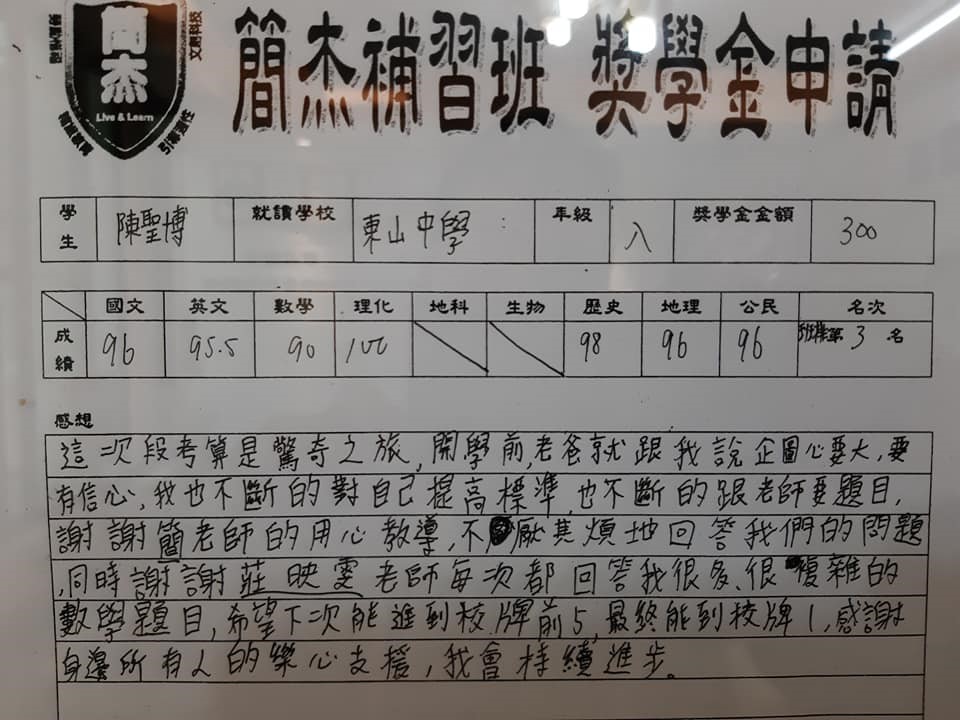 簡杰
Live & Learn
簡杰補習班 獎學金申請
學生 陳聖博 就讀學校 東山中學 年級 八 獎學金金額 300
國文 英文 數學 理化 地科 生物 歷史 地理 公民 名次
成績 96 95.5 90 100 98 96 96 班排第 3 名
感想
這次段考算是驚奇之旅,開學前,老爸就跟我說企圖心要大,要
有信心,我也不斷的對自己提高標準,也不斷的跟老師要題目,
謝謝簡老師的用心教導,不厭其煩地回答我們的問題
,同時謝謝莊映雯老師每次都回答我很多、很複雜的
數學題目,希望下次能進到校牌前5,最終能到校牌1,感謝
身邊所有人的樂心支援,我會持續進步。